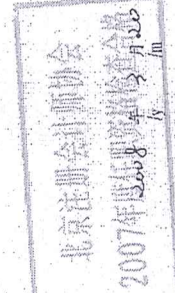 北京注册会计师协会
2007年度任职资格检查合格
2008 年 3 月 20
/y /m